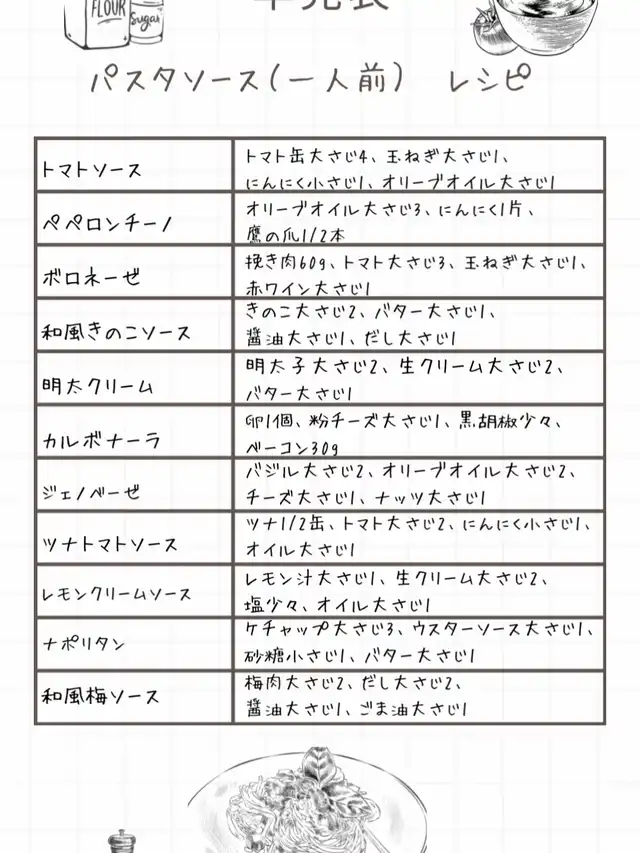 FLOUR
Sugar
早見表
パスタソース(一人前) レシピ
トマトソース
トマト缶大さじ4、玉ねぎ大さじ1、
にんにく小さじ1、オリーブオイル大さじ1
ペペロンチーノ
オリーブオイル大さじ3、にんにく1片、
鷹の爪1/2本
ボロネーゼ
挽き肉60g、トマト大さじ3、玉ねぎ大さじ1、
赤ワイン大さじ1
和風きのこソース
きのこ大さじ2、バター大さじ1、
醤油大さじ1、だし大さじ1
明太クリーム
明太子大さじ2、生クリーム大さじ2、
バター大さじ1
カルボナーラ
卵1個、粉チーズ大さじ1、黒胡椒少々、
ベーコン30g
ジェノベーゼ
バジル大さじ2、オリーブオイル大さじ2、
チーズ大さじ1、ナッツ大さじ1
ツナトマトソース
ツナ1/2缶、トマト大さじ2、にんにく小さじ1、
オイル大さじ1
レモンクリームソース
レモン汁大さじ1、生クリーム大さじ2、
塩少々、オイル大さじ1
ナポリタン
ケチャップ大さじ3、ウスターソース大さじ1、
砂糖小さじ1、バター大さじ1
和風梅ソース
梅肉大さじ2、だし大さじ2、
醤油大さじ1、ごま油大さじ1